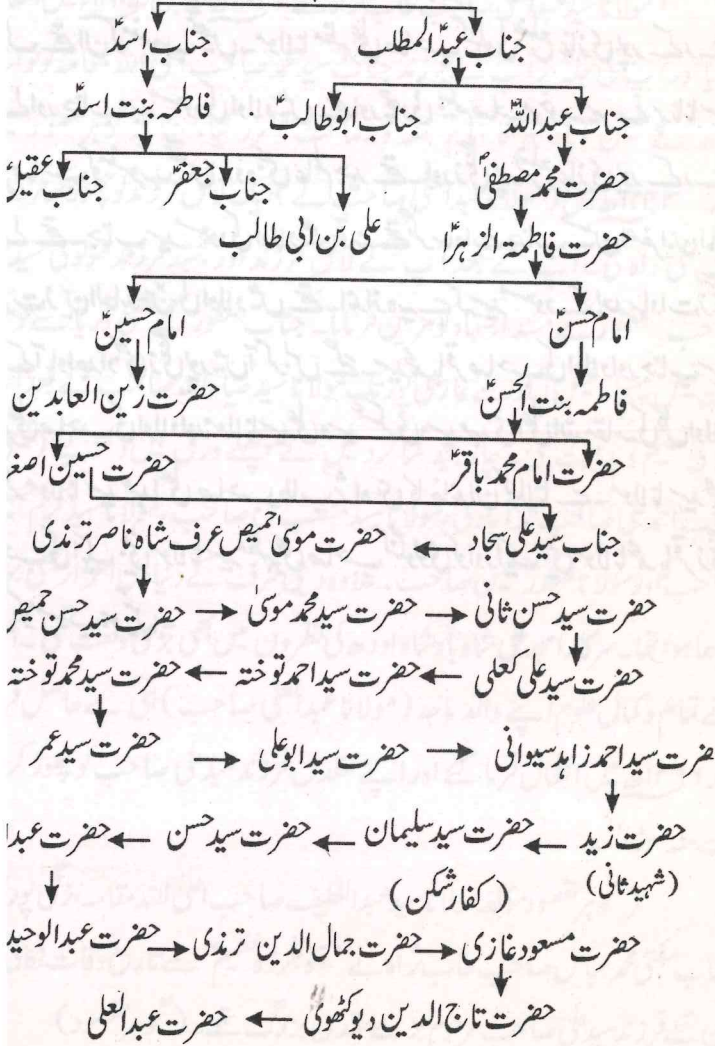 جناب عبدالمطلب جناب اسدؑ
جناب عبداللہؑ جناب ابوطالبؑ فاطمہ بنت اسدؑ
حضرت محمد مصطفیٰؐ جناب جعفرؑ جناب عقیلؑ
حضرت فاطمۃ الزہرا علی بن ابی طالب
امام حسنؑ امام حسینؑ
فاطمہ بنت الحسنؑ حضرت زین العابدین
حضرت امام محمد باقرؑ حضرت حسین اصغر
جناب سید علی سجاد حضرت موسیٰ حمیص عرف شاہ ناصر ترمذی
حضرت سید حسن ثانی حضرت سید محمد موسیٰ حضرت سید حسن حمیص
حضرت سید علی کعلی حضرت سید احمد توختہ حضرت سید محمد توختہ
حضرت سید احمد زاہد سیوانی حضرت سید ابو علی حضرت سید عمر
حضرت زید حضرت سید سلیمان حضرت سید حسن حضرت عبدا
(شہید ثانی) (کفار شکن)
حضرت مسعود غازی حضرت جمال الدین ترمذی حضرت عبدالوحید
حضرت تاج الدین دیوکٹھوی حضرت عبدالعلی